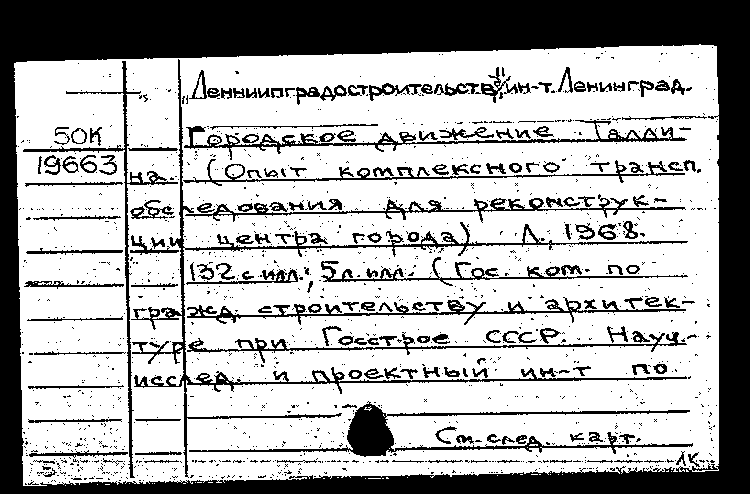 "ЛенНИИПградостроительства", ин-т. Ленинград.
50К
19663
Городское движение Талли-
на. (Опыт комплексного трансп.
обследования для реконструк-
ции центра города) Л., 1968.
132 с. илл.; 5 л. илл. (Гос. ком. по
гражд. строительству и архитек-
туре при Госстрое СССР. Науч.-
исслед. и проектный ин-т по
См. след. карт.
1К